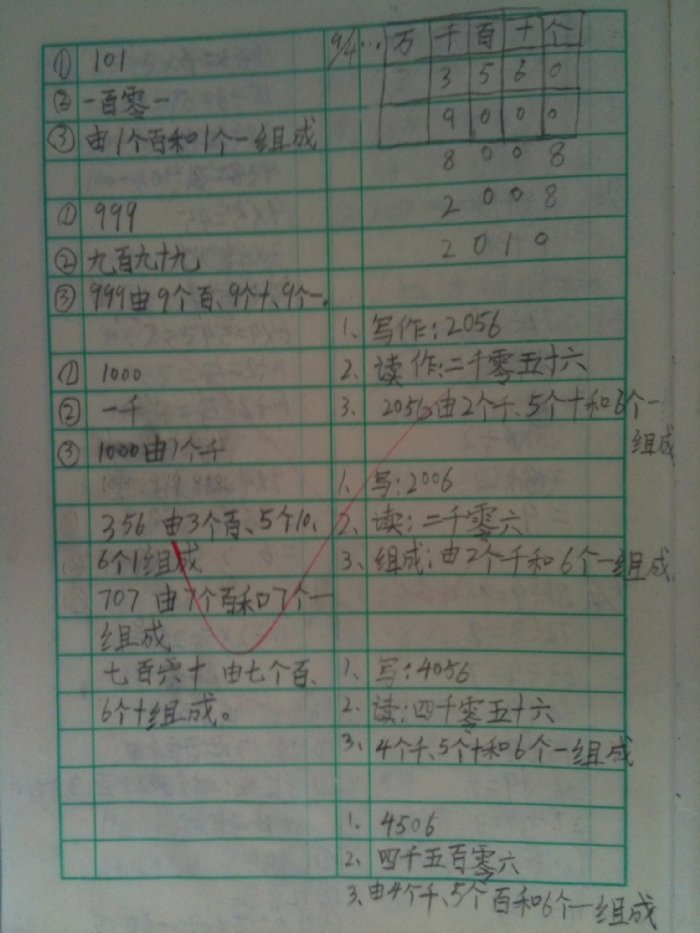 ① 101
② 一百零一
③ 由1个百和1个一组成
① 999
② 九百九十九
③ 999由9个百、9个十、9个一.
① 1000
② 一千
③ 1000由1个千
356 由3个百、5个10、
6个1组成
707 由7个百和7个一
组成
七百六十 由七个百、
6个十组成。
9/4 … 万 千 百 十 个
3 5 6 0
9 0 0 0
8 0 0 8
2 0 0 8
2 0 1 0
1、写作:2056
2、读作:二千零五十六
3、2056由2个千、5个十和6个一
组成
1、写:2006
2、读:二千零六
3、组成:由2个千和6个一组成
1、写:4056
2、读:四千零五十六
3、4个千、5个十和6个一组成
1、4506
2、四千五百零六
3、由4个千、5个百和6个一组成